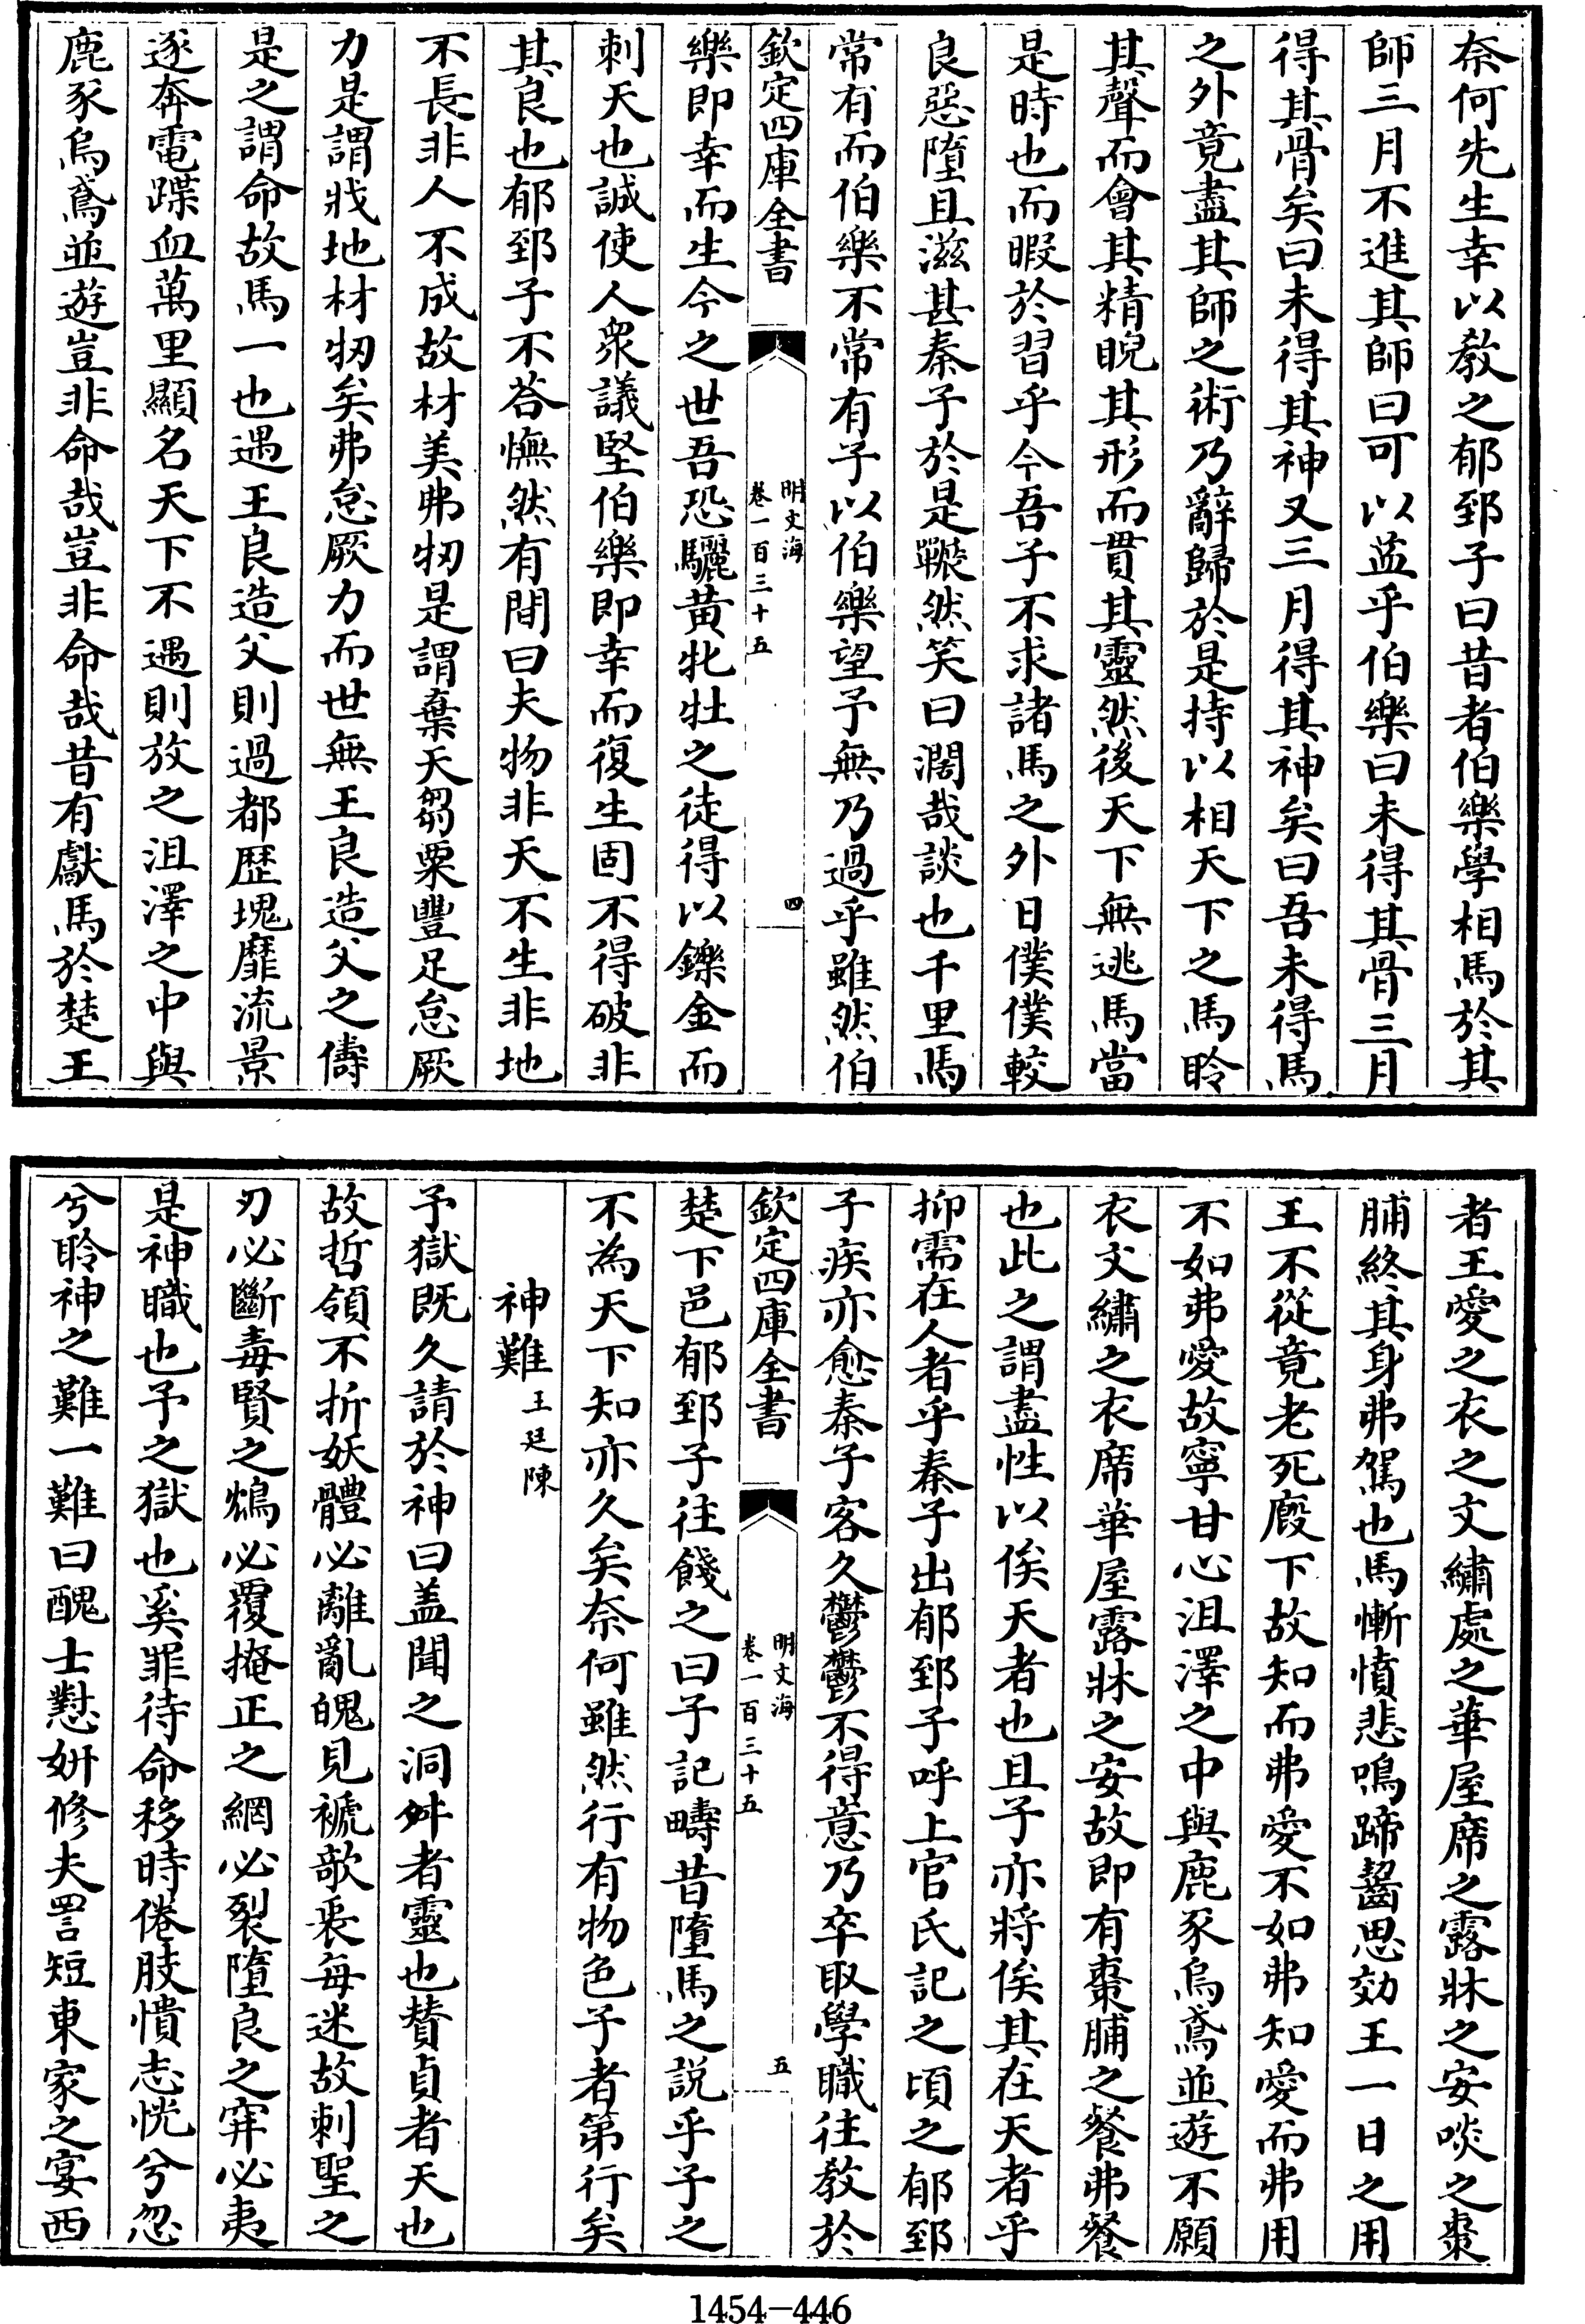 奈何先生幸以教之郁郅子曰昔者伯樂學相馬於其
師三月不進其師曰可以葢乎伯樂曰未得其骨三月
得其骨矣曰未得其神又三月得其神矣曰吾未得馬
之外竟盡其師之術乃辭歸於是持以相天下之馬聆
其聲而會其精睨其形而貫其靈然後天下無逃馬當
是時也而暇於習乎今吾子不求諸馬之外日僕僕較
良惡墮且滋甚秦子於是囅然笑曰濶哉談也千里馬
常有而伯樂不常有子以伯樂望予無乃過乎雖然伯
欽定四庫全書
明文海
卷一百三十五
四
樂即幸而生今之世吾恐驪黄牝牡之徒得以鑠金而
刺天也誠使人衆議堅伯樂即幸而復生固不得破非
其良也郁郅子不荅憮然有間曰夫物非天不生非地
不長非人不成故材美弗牣是謂棄天芻粟豐足怠厥
力是謂戕地材牣矣弗怠厥力而世無王良造父之儔
是之謂命故馬一也遇王良造父則過都歴塊靡流景
逐奔電蹀血萬里顯名天下不遇則放之沮澤之中與
鹿豕烏鳶並遊豈非命哉豈非命哉昔有獻馬於楚王
者王愛之衣之文繡處之華屋席之露牀之安啖之棗
脯終其身弗駕也馬慚憤悲鳴蹄齧思効王一日之用
王不從竟老死廄下故知而弗愛不如弗知愛而弗用
不如弗愛故寧甘心沮澤之中與鹿豕烏鳶並遊不願
衣文繡之衣席華屋露牀之安故即有棗脯之餐弗餐
也此之謂盡性以俟天者也且子亦將俟其在天者乎
抑需在人者乎秦子出郁郅子呼上官氏記之頃之郁郅
子疾亦愈秦子客久鬱鬱不得意乃卒取學職往教於
欽定四庫全書
明文海
卷一百三十五
五
楚下邑郁郅子往餞之曰子記疇昔墮馬之説乎子之
不為天下知亦久矣奈何雖然行有物色子者第行矣
神難 王廷陳
予獄既久請於神曰盖聞之洞舛者靈也賛貞者天也
故哲領不折妖體必離亂魄見褫歆喪每迷故刺聖之
刃必斷毒賢之鴆必覆掩正之網必裂墮良之穽必夷
是神職也予之獄也奚罪待命移時倦肢憒志恍兮忽
兮聆神之難一難曰醜士懟妍修夫詈短東家之宴西
1454-446